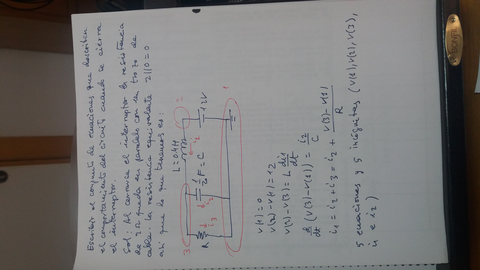 Escribir el conjunto de ecuaciones que describen
el comportamiento del circuito cuando se cierra
el interruptor.
Sol: Al cerrar el interruptor la resistencia
de 2Ω queda en paralelo con un trozo de
cable. La resistencia equivalente 2||0=0
así que lo que tenemos es:
3
L=0,4H
2
R
i3
F=C
i2
i1
12V
1
v(1)=0
v(2)-v(1)=12
v(2)-v(3)=L di1/dt
d/dt (v(3)-v(1))=i2/C
i1=i2+i3=i2+ (v(3)-v(1))/R
5 ecuaciones y 5 incógnitas (v(1),v(2),v(3),
i1 e i2)